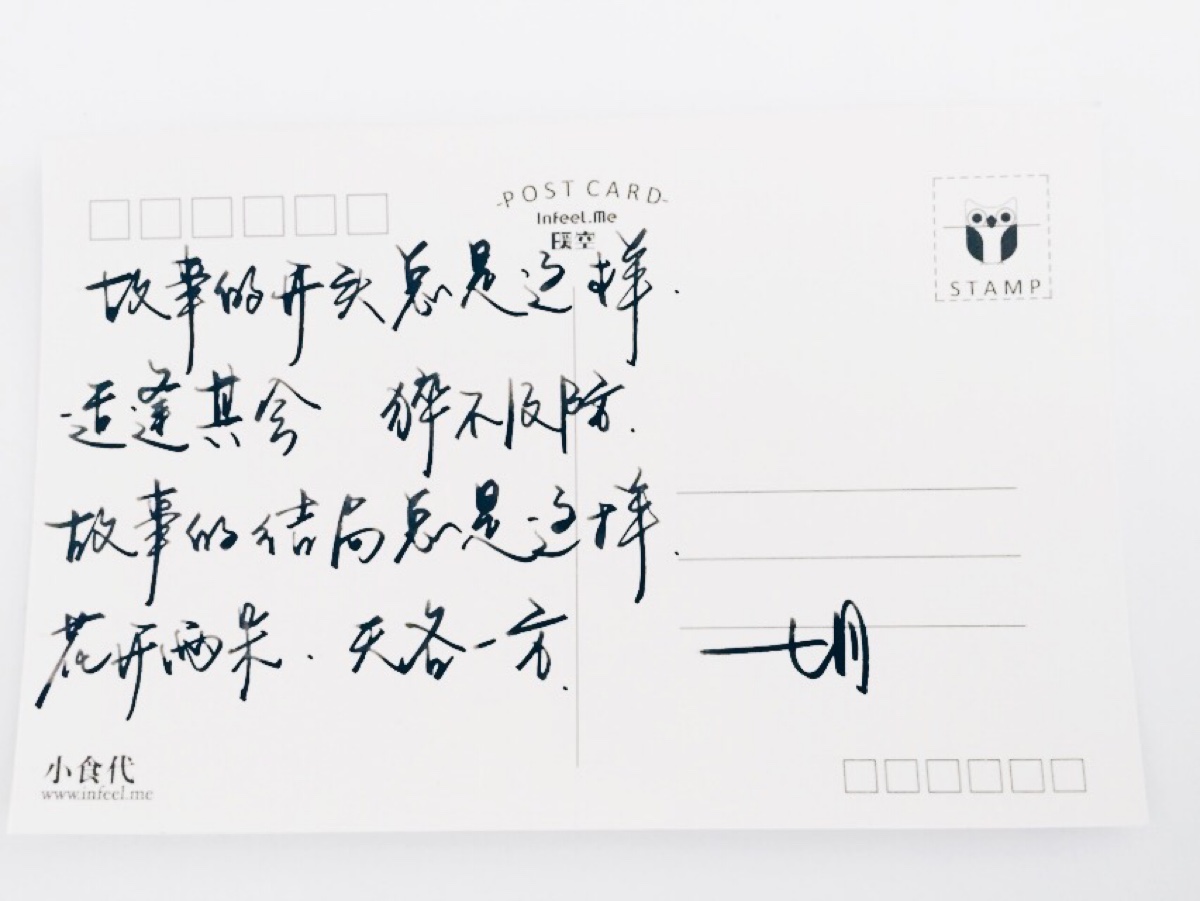 -POST CARD-
Infeel.Me
STAMP
故事的开头总是这样.
适逢其会 猝不及防.
故事的结局总是这样.
花开两朵. 天各一方.
七月
小食代
www.infeel.me